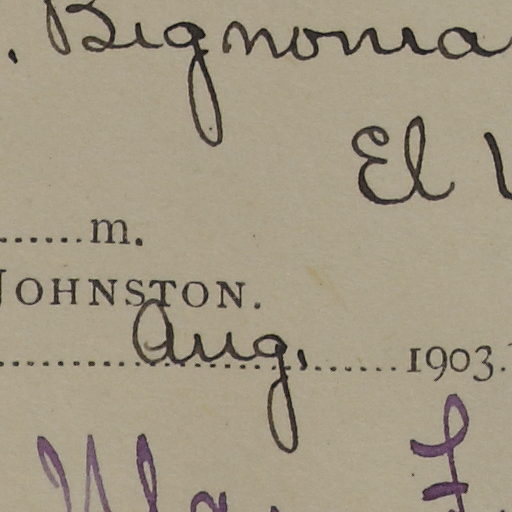 . Bignonia
El
......m.
JOHNSTON.
Aug, ......1903.